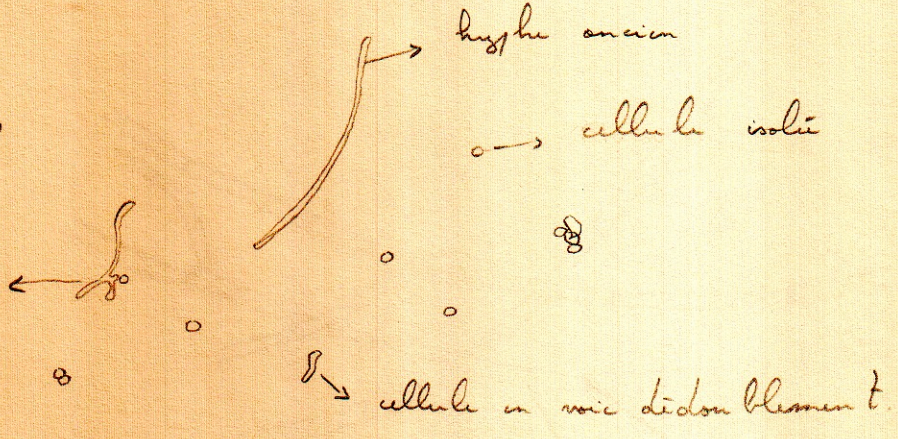 hyphe ancien
cellule isolée
cellule en voie dédoublement.